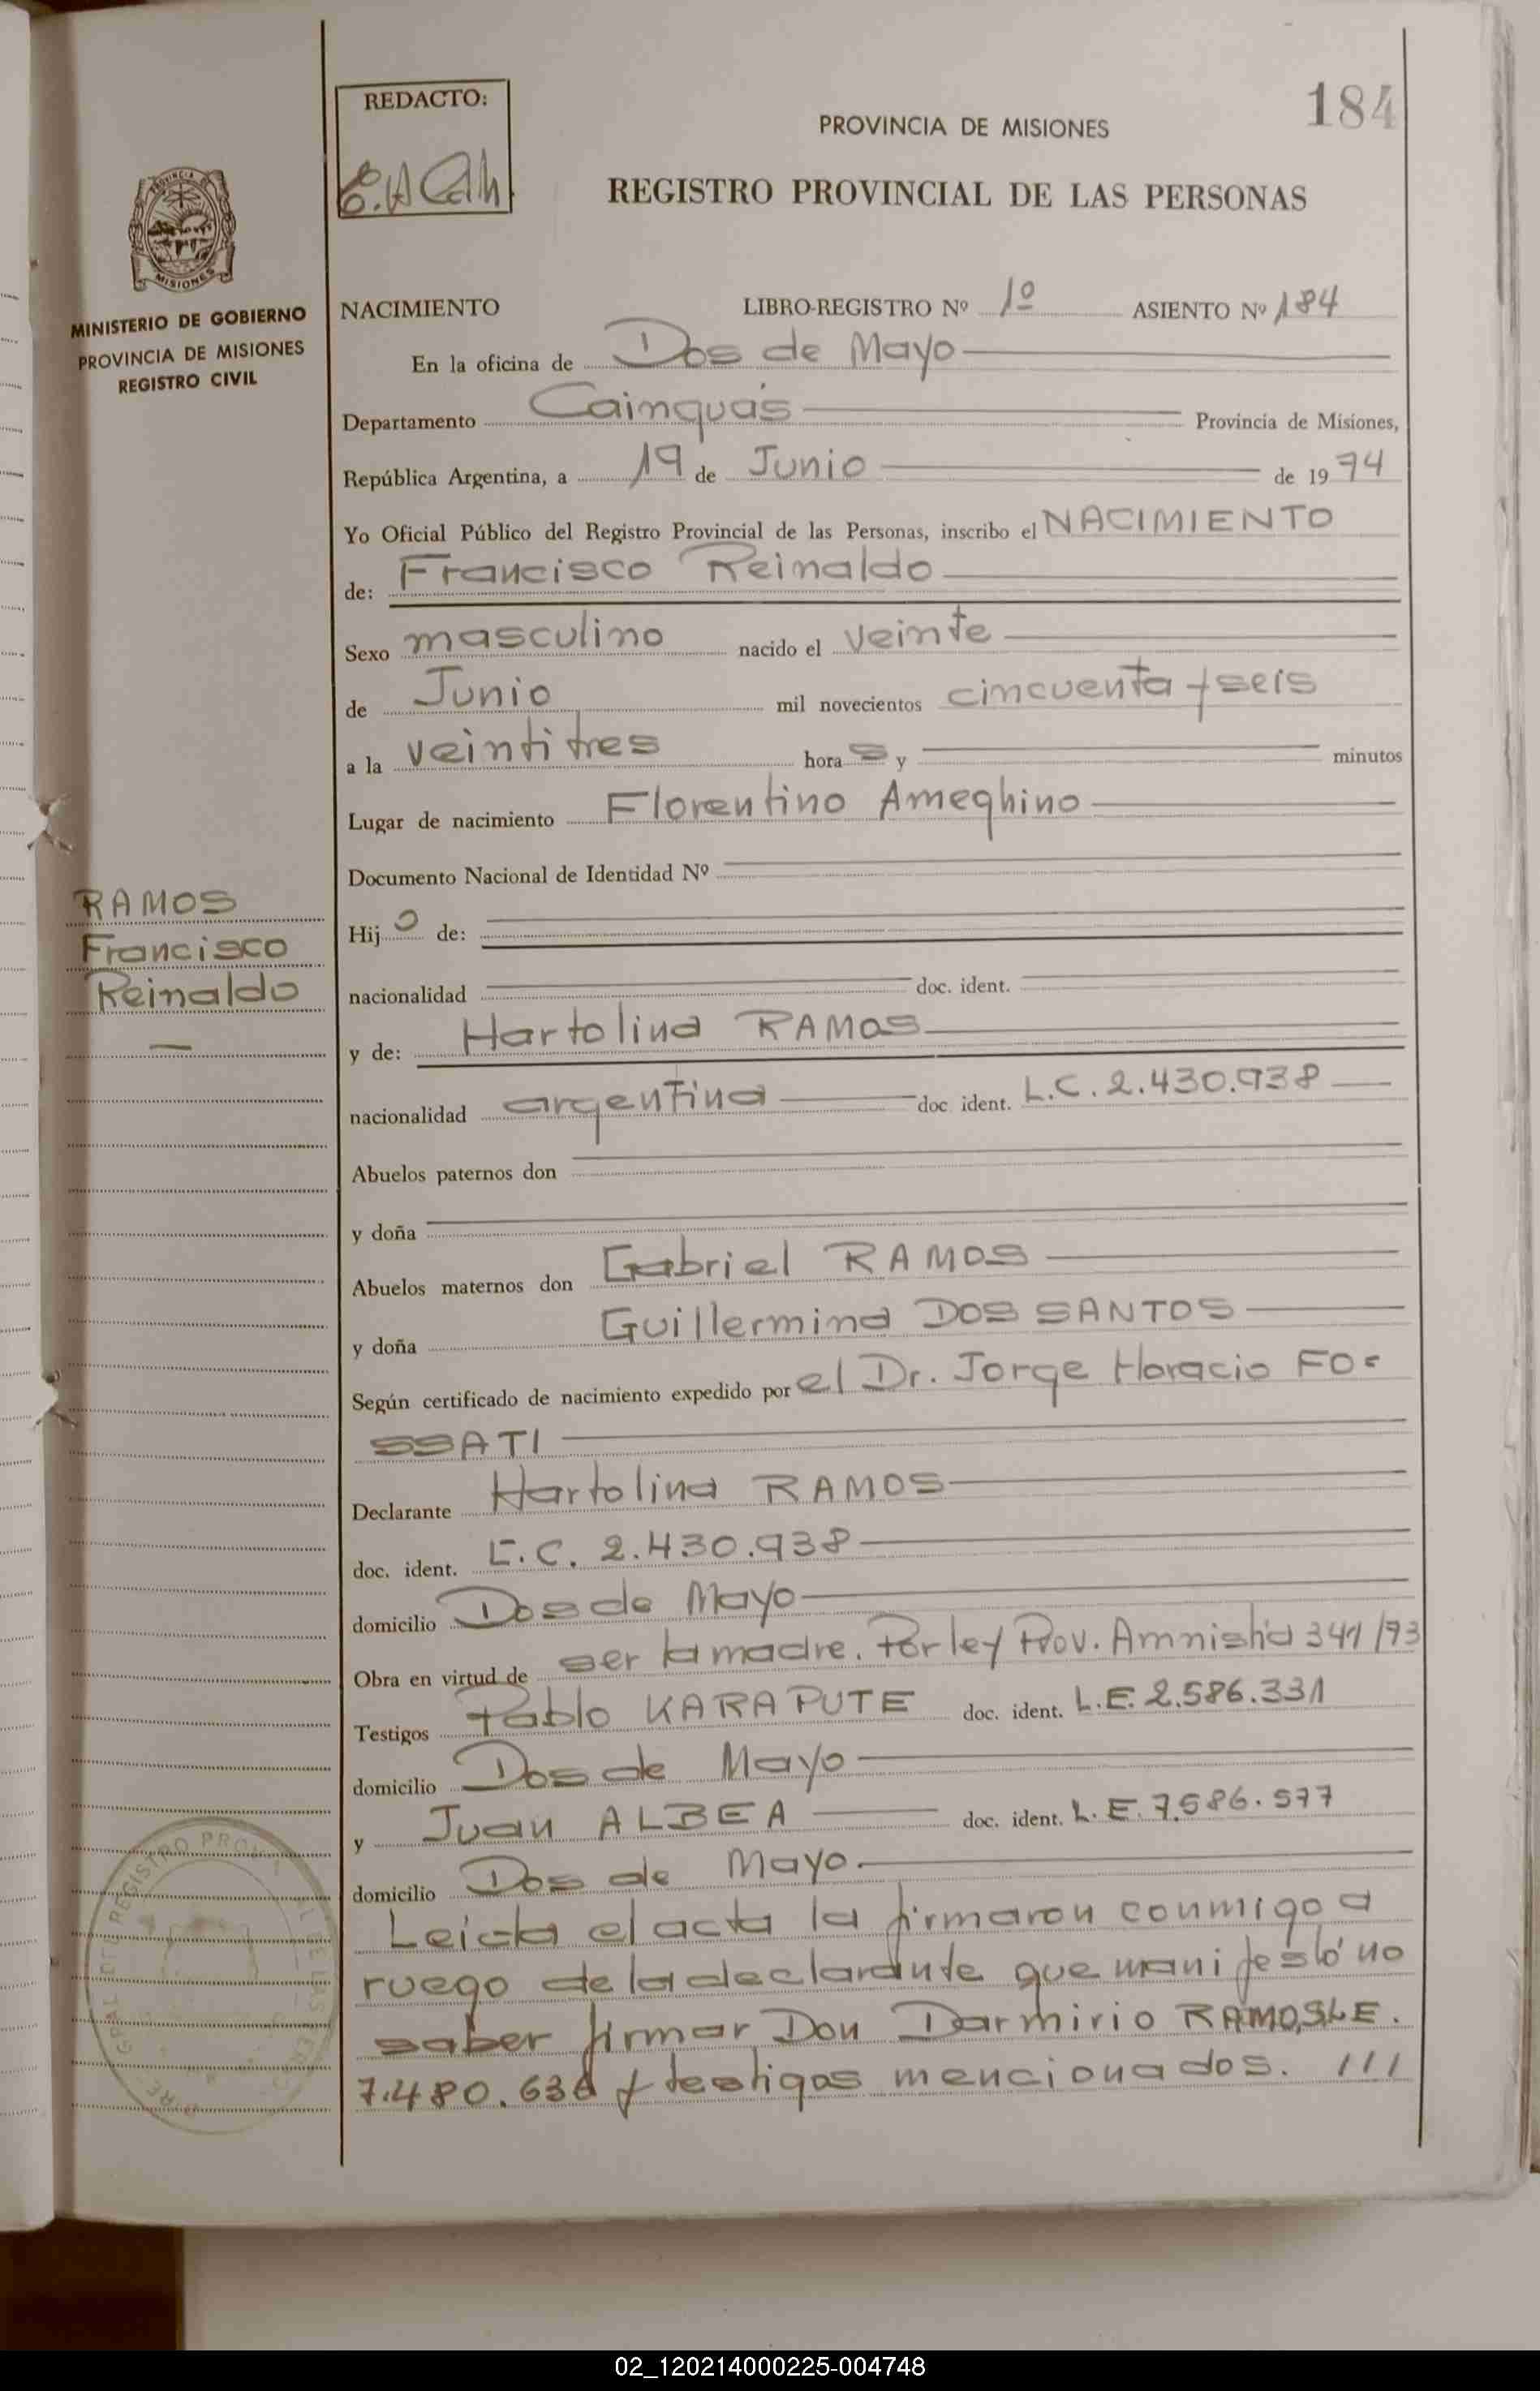 184
REDACTO:
PROVINCIA DE MISIONES
REGISTRO PROVINCIAL DE LAS PERSONAS
MISIONES
MINISTERIO DE GOBIERNO
PROVINCIA DE MISIONES
REGISTRO CIVIL
NACIMIENTO LIBRO-REGISTRO Nº 1º ASIENTO Nº 184
En la oficina de Dos de Mayo
Departamento Cainguás Provincia de Misiones,
República Argentina, a 19 de Junio de 1974
Yo Oficial Público del Registro Provincial de las Personas, inscribo el NACIMIENTO
de: Francisco Reinaldo
Sexo masculino nacido el veinte
de Junio mil novecientos cincuenta y seis
a la veintitres hora s y minutos
Lugar de nacimiento Florentino Ameghino
Documento Nacional de Identidad Nº
RAMOS
Francisco
Reinaldo
Hijo de:
nacionalidad doc. ident.
y de: Hartolina RAMOS
nacionalidad argentina doc ident. L.C. 2.430.938
Abuelos paternos don
y doña
Abuelos maternos don Gabriel RAMOS
y doña Guillermina DOS SANTOS
Según certificado de nacimiento expedido por el Dr. Jorge Horacio FO-
SSATI
Declarante Hartolina RAMOS
doc. ident. L.C. 2.430.938
domicilio Dos de Mayo
Obra en virtud de ser la madre. Por ley Prov. Amnistía 341/73
Testigos Pablo KARAPUTE doc. ident. L.E. 2.586.331
domicilio Dos de Mayo
y Juan ALBEA doc. ident. L.E. 7.586.577
domicilio Dos de Mayo.
Leida el acta la firmaron conmigo a
ruego de la declarante que manifestó no
saber firmar Don Darmirio RAMOS, LE.
7.480.636 y testigos mencionados. ///
02_120214000225-004748